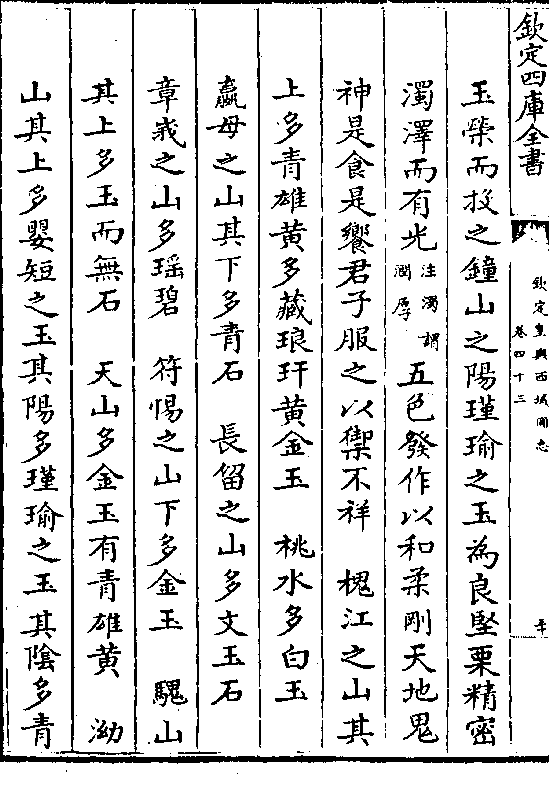 欽定四庫全書
欽定皇輿西域圖志
卷四十三
玉榮而投之鐘山之陽瑾瑜之玉為良堅栗精密
濁澤而有光注濁謂潤厚五色發作以和柔剛天地鬼
神是食是饗君子服之以禦不祥 槐江之山其
上多青雄黃多藏琅玕黃金玉 桃水多白玉
蠃母之山其下多青石 長留之山多文玉石
章峩之山多瑶碧 符惕之山下多金玉 騩山
其上多玉而無石 天山多金玉有青雄黃 泑
山其上多嬰短之玉其陽多瑾瑜之玉其陰多青